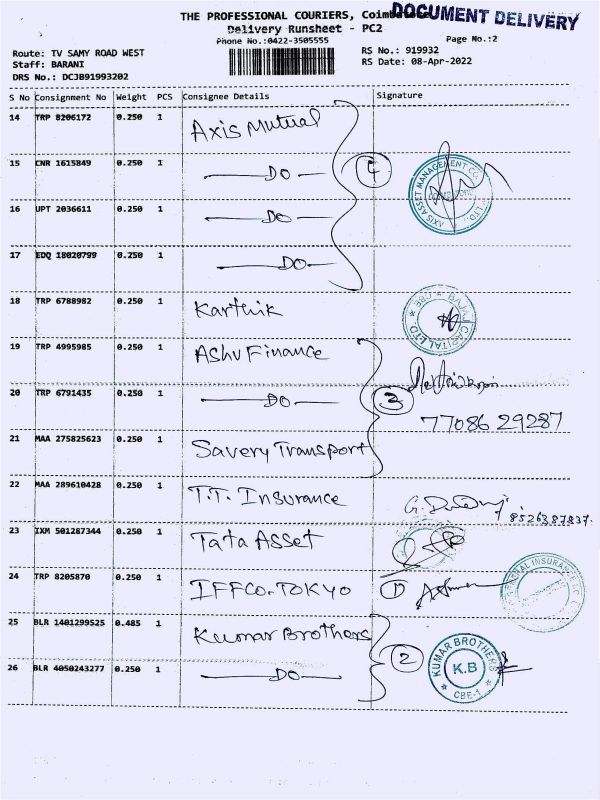 THE PROFESSIONAL COURIERS, Coimbatore
DOCUMENT DELIVERY
Delivery Runsheet - PC2
Phone No.:0422-3505555
Page No.:2
Route: TV SAMY ROAD WEST
RS No.: 919932
Staff: BARANI
RS Date: 08-Apr-2022
DRS No.: DCJB91993202
S No Consignment No Weight PCS Consignee Details Signature
14 TRP 8206172 0.250 1 Axis Mutual
15 CNR 1615849 0.250 1 DO 4
AXIS ASSET MANAGEMENT CO. LTD.
16 UPT 2036611 0.250 1 DO
17 EDQ 18020799 0.250 1 DO
18 TRP 6788982 0.250 1 Karthik
BAJAJ CAPITAL LTD. * CBE *
19 TRP 4995985 0.250 1 Ashv Finance
20 TRP 6791435 0.250 1 DO 3
77086 29287
21 MAA 275825623 0.250 1 Savery Transport
22 MAA 289610428 0.250 1 T.T. Insurance
8526387837
23 IXM 501287344 0.250 1 Tata Asset
24 TRP 8205870 0.250 1 IFFCO. TOKYO 1
GENERAL INSURANCE CO.
25 BLR 1401299525 0.485 1 Kumar Brothers
26 BLR 4050243277 0.250 1 DO 2
KUMAR BROTHERS
K.B
* CBE-1 *